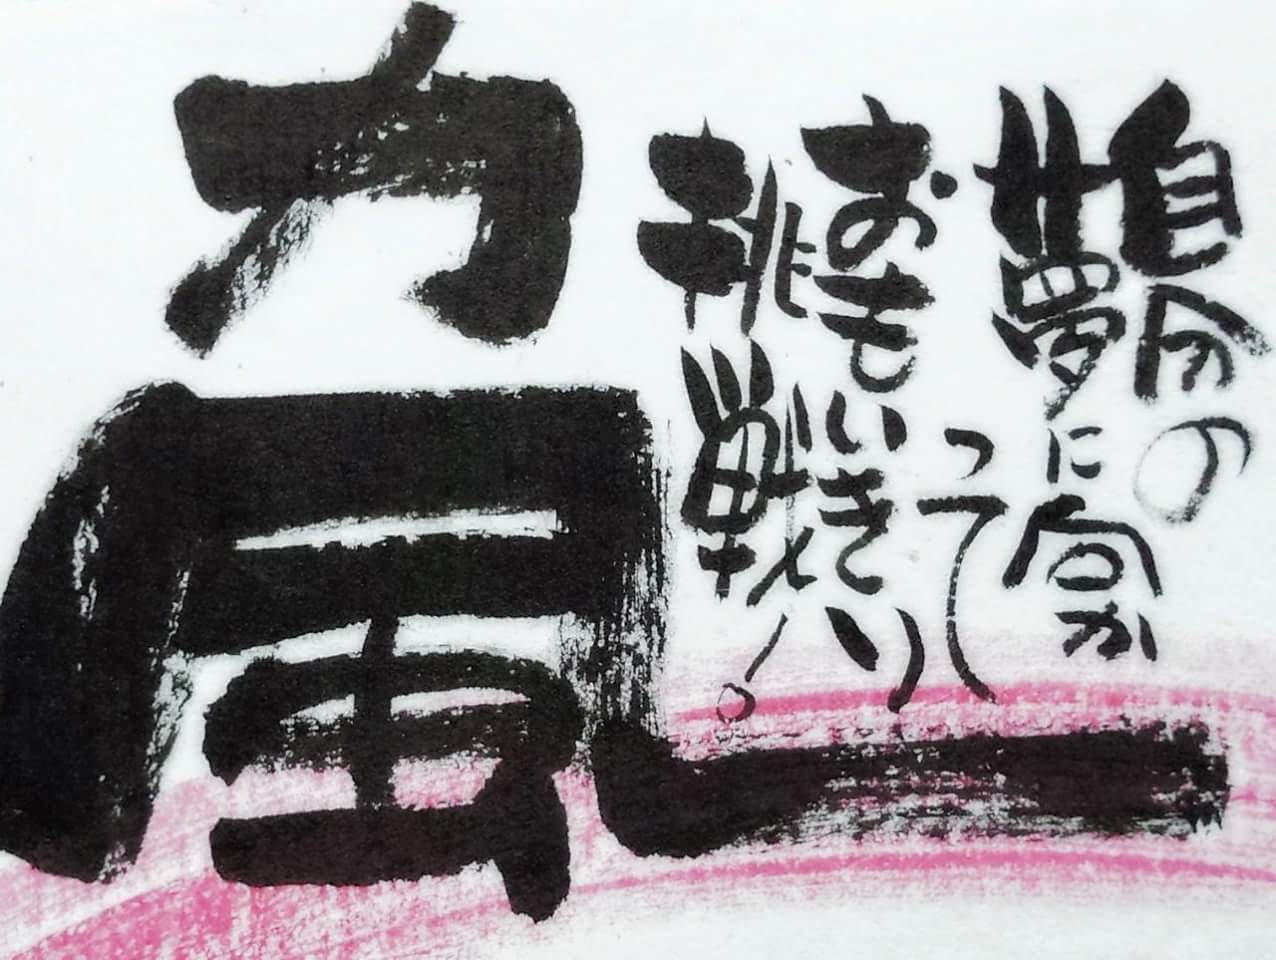 自分の
夢に向か
って
おもいきり
挑戦！
力風